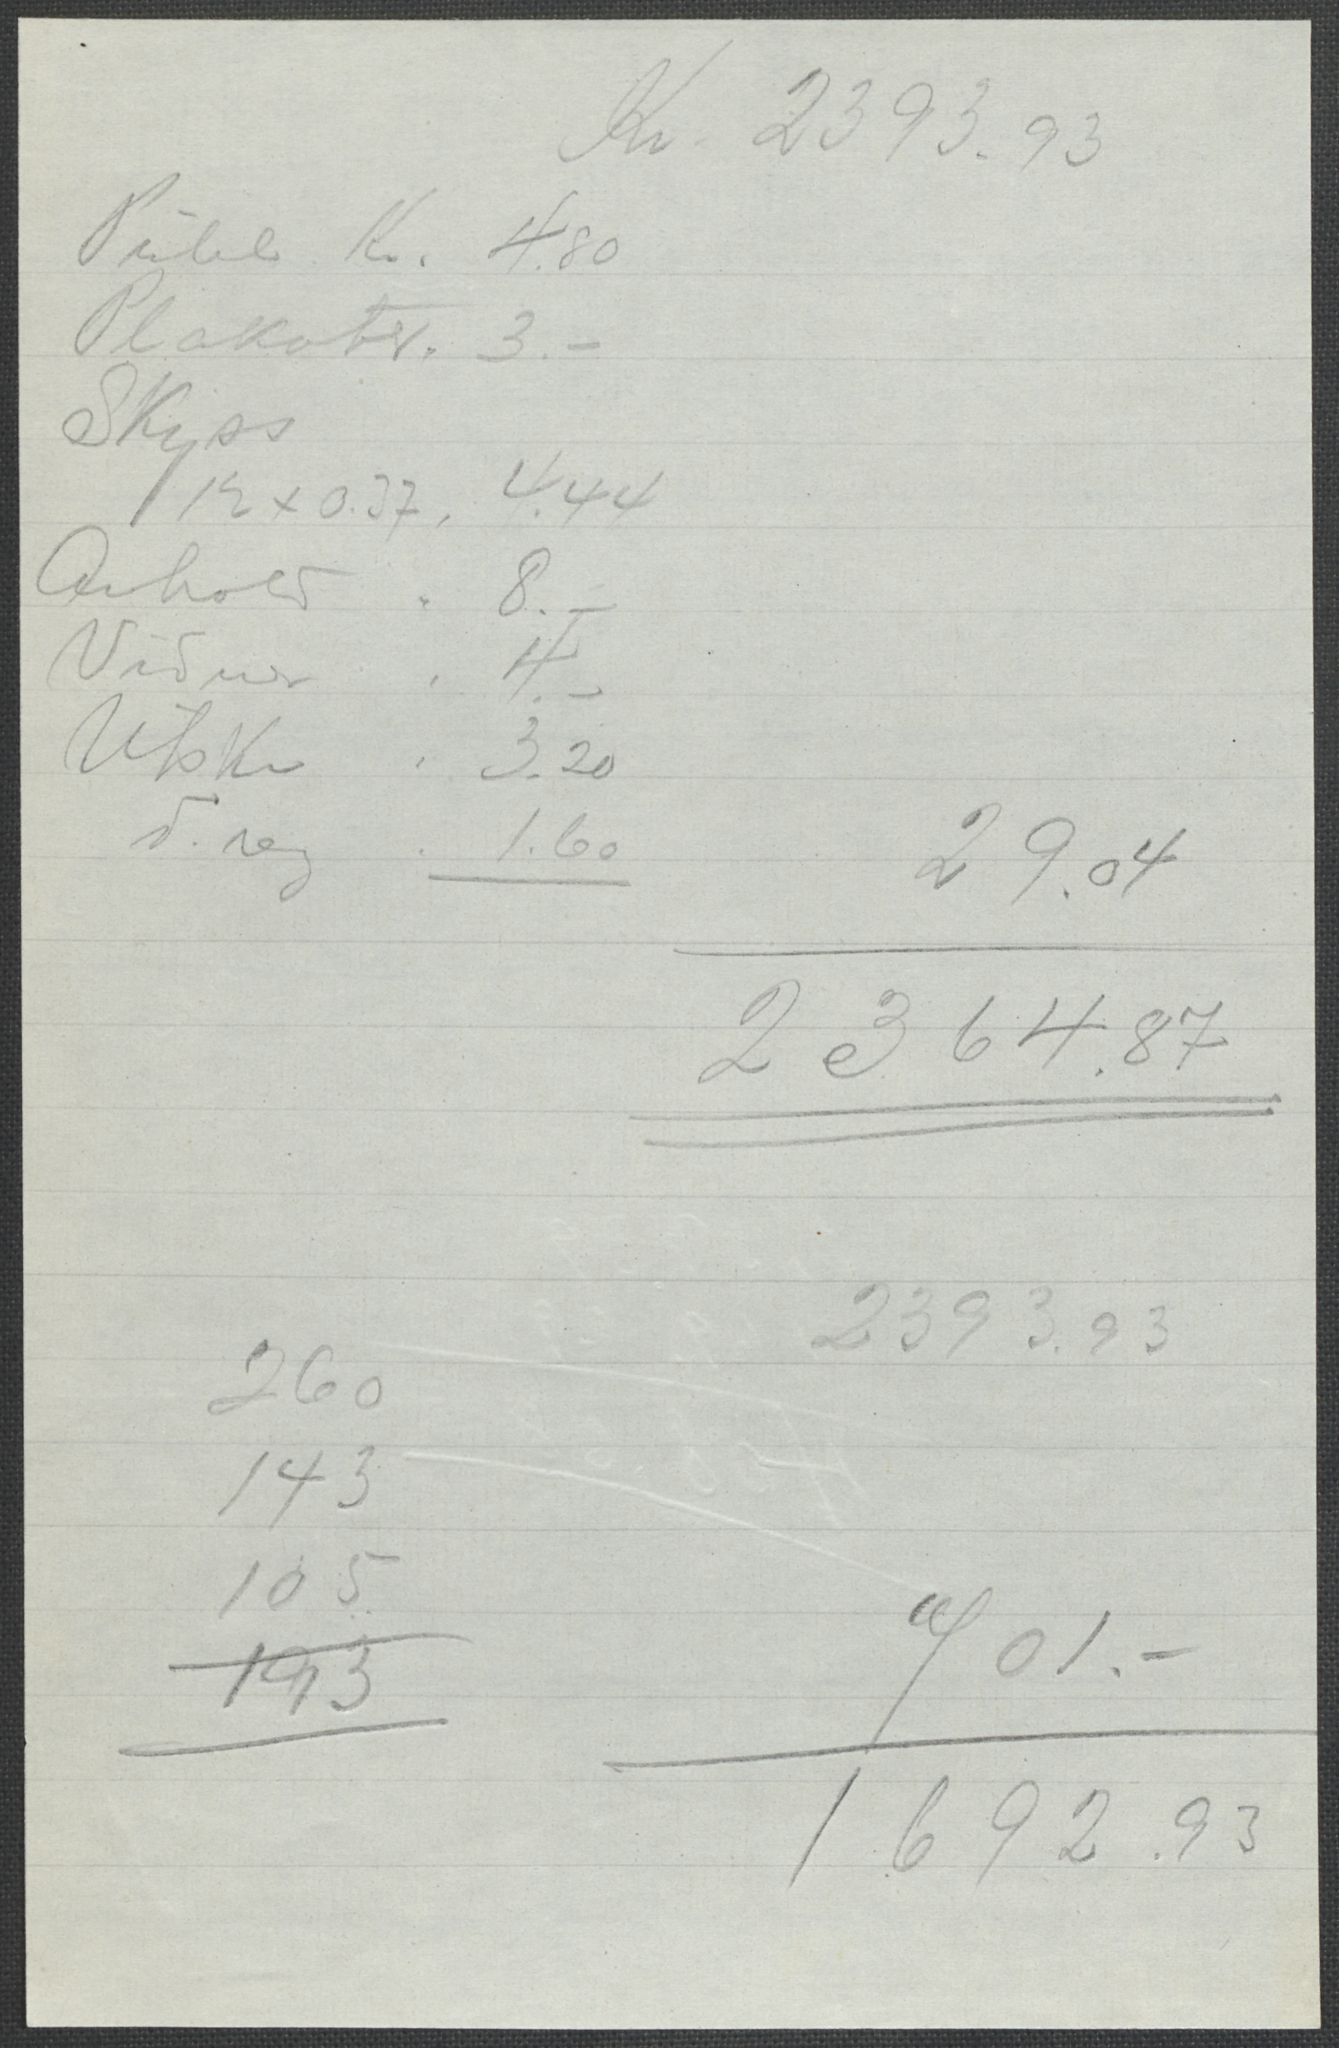 Kr. 2393.93
Publ. Kr. 4.80
Plakater. 3.-
Skyss
12 x 0.37, 4.44
Auhold . 8.-
Vidner . 4.-
Utskr . 3.20
d. reg . 1.60
29.04
2364.87
2393.93
260
143
105
193
701.-
1692.93